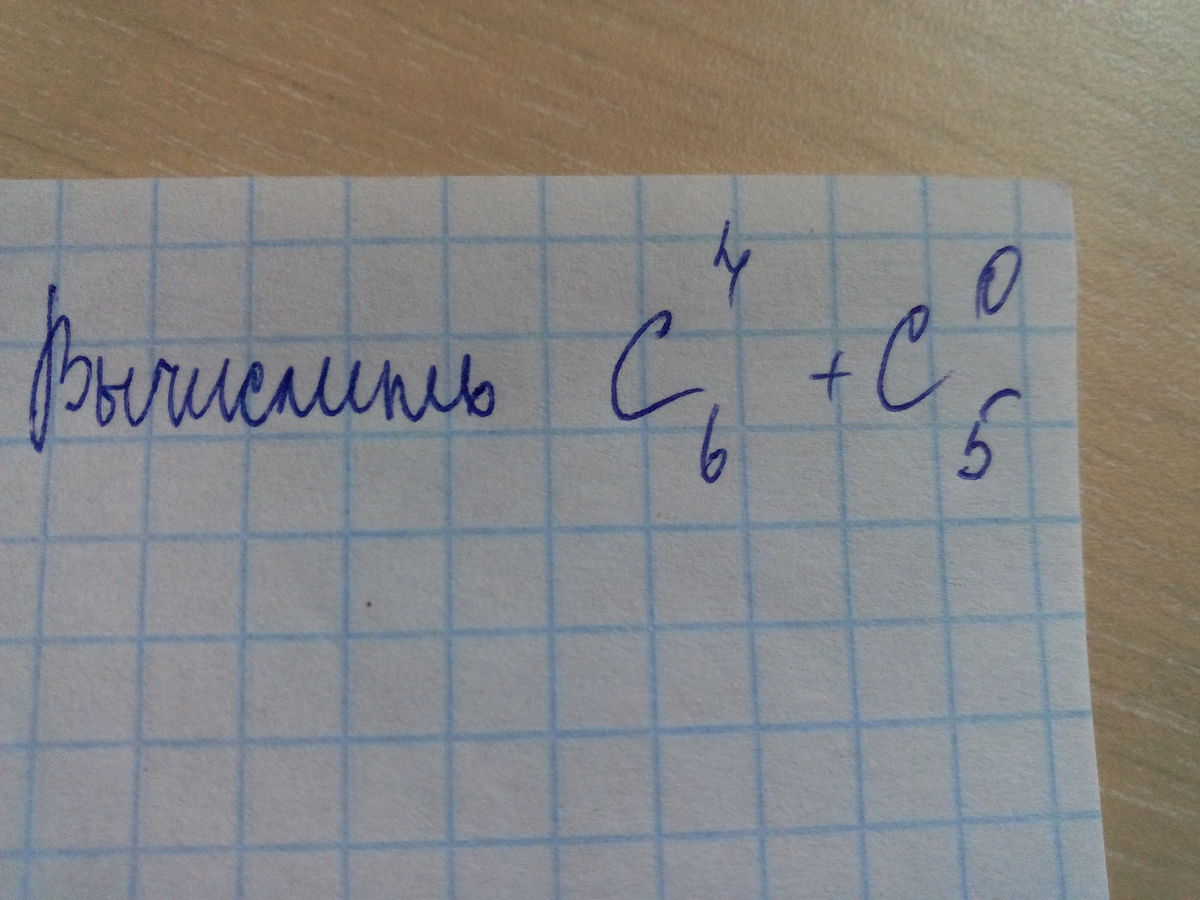 Вычислить C₆⁴ + C₅⁰